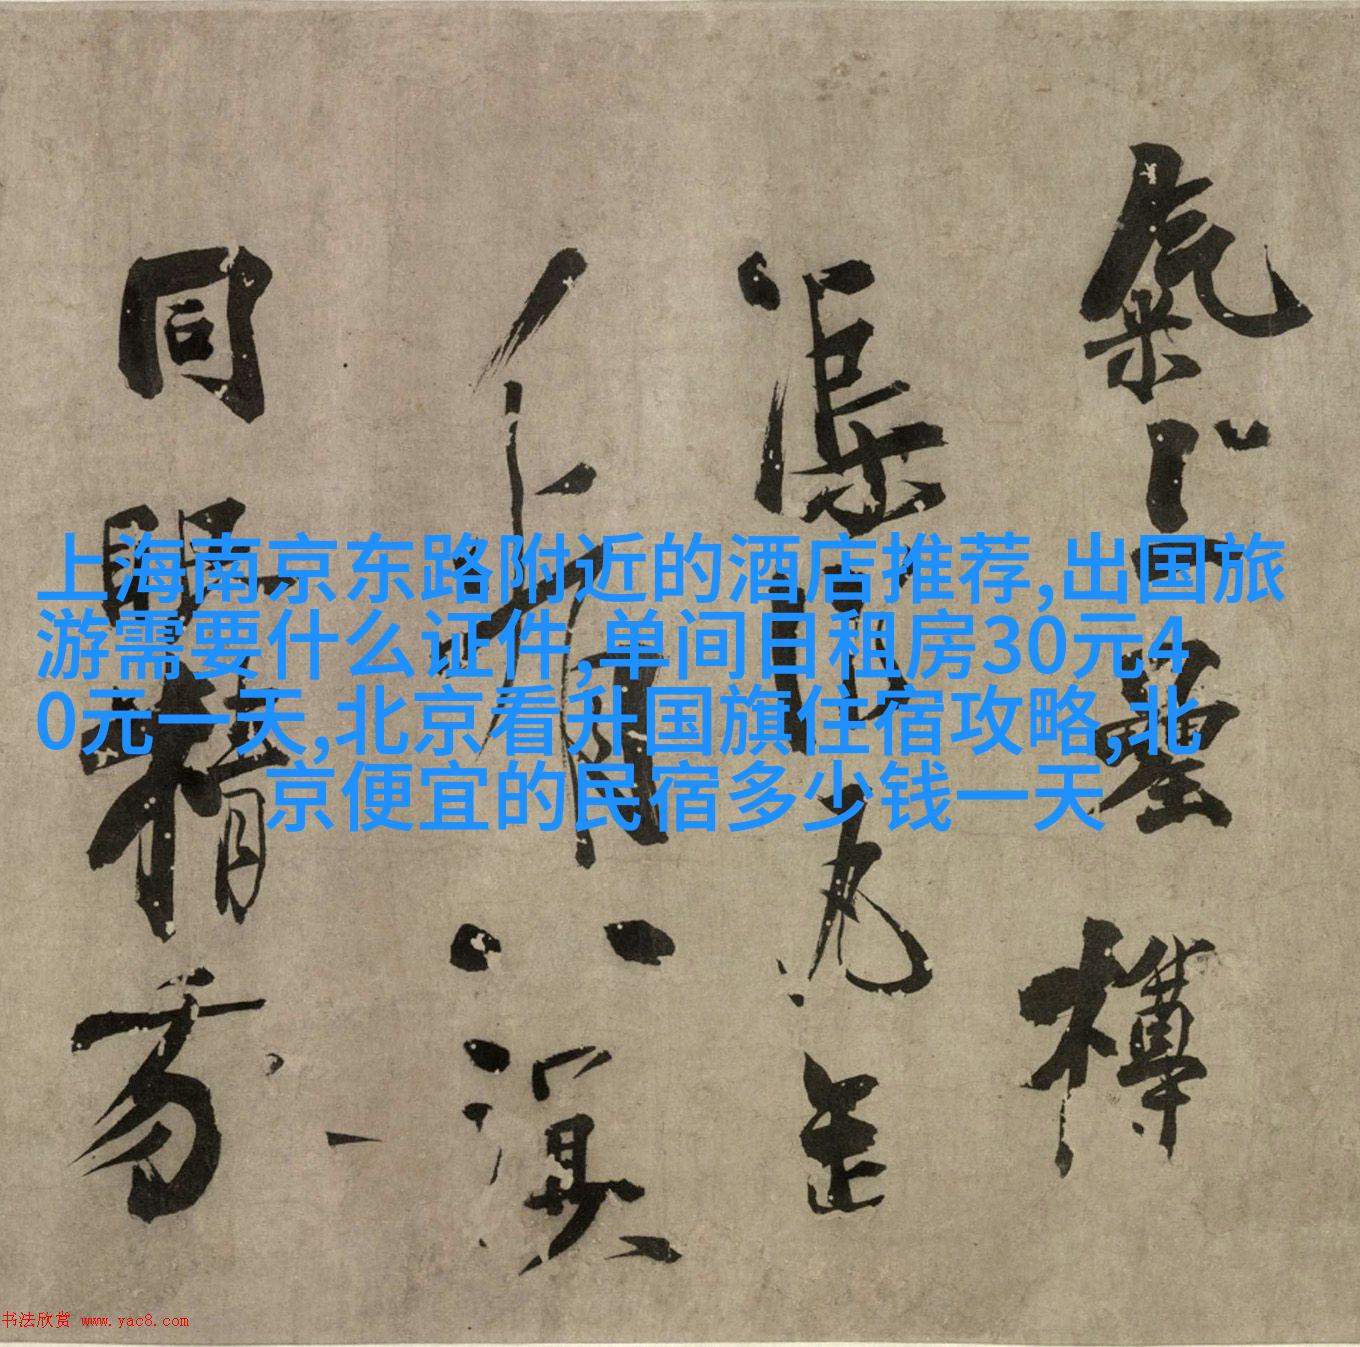 上海南京东路附近的酒店推荐,出国旅
游需要什么证件,单间日租房30元4
0元一天,北京看升国旗住宿攻略,北
京便宜的民宿多少钱一天
氣 樽
渠
有八溟
同 精
书法欣赏 www.yac8.com